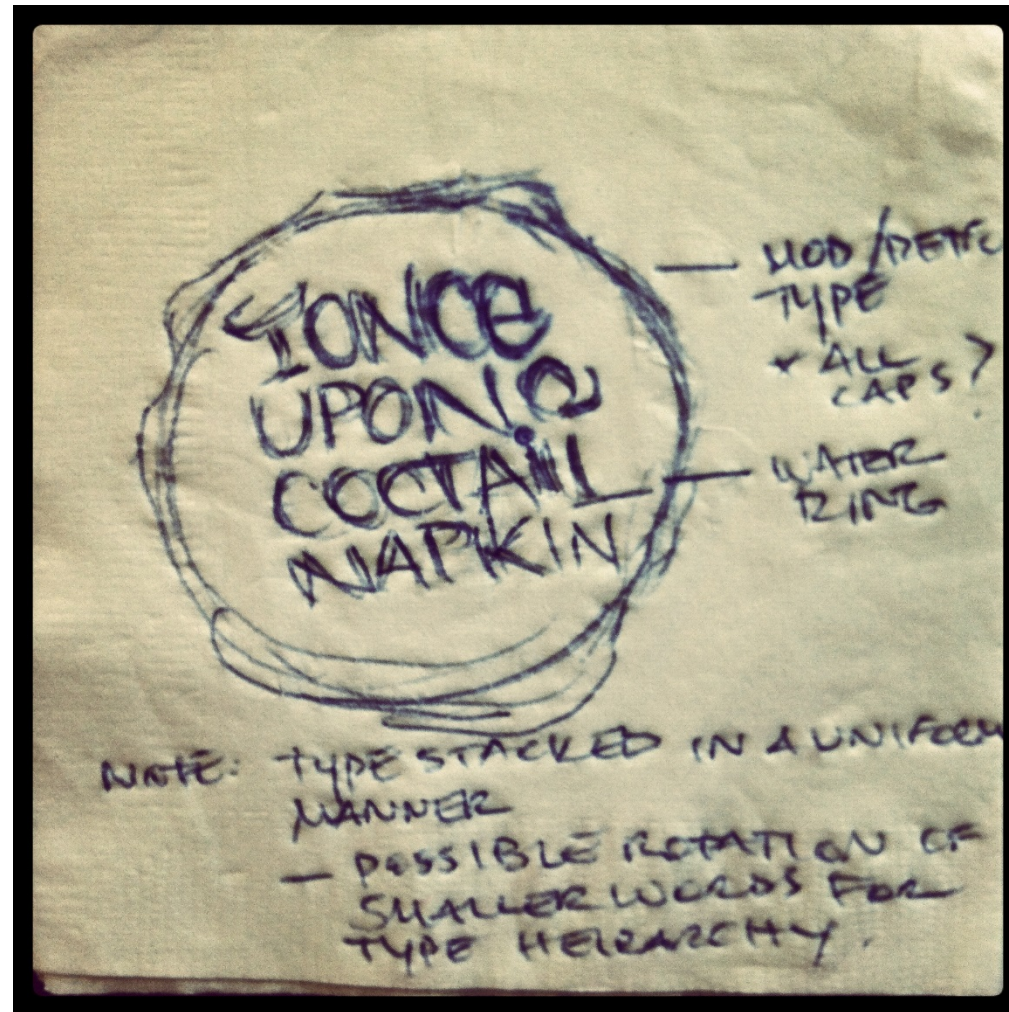 ONCE
UPON a
COCTAIL
NAPKIN
MOD/RETRO
TYPE
* ALL
CAPS?
WATER
RING
NOTE: TYPE STACKED IN A UNIFORM
MANNER
— POSSIBLE ROTATION OF
SMALLER WORDS FOR
TYPE HEIRARCHY.